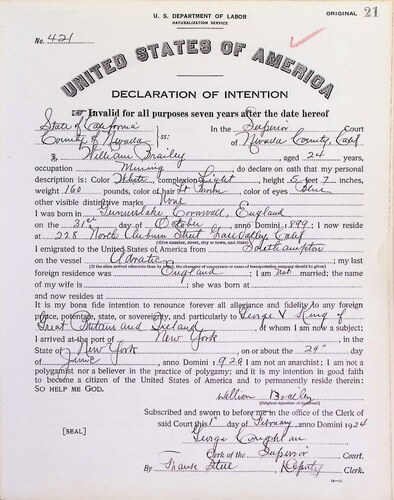 U. S. DEPARTMENT OF LABOR
ORIGINAL 21
NATURALIZATION SERVICE
No. 421
UNITED STATES OF AMERICA
DECLARATION OF INTENTION
☛ Invalid for all purposes seven years after the date hereof
State of California
County of Nevada ss: In the Superior Court of Nevada County, Calif
I, William Brailey, aged 24 years,
occupation Mining, do declare on oath that my personal
description is: Color White, complexion Light, height 5 feet 7 inches,
weight 160 pounds, color of hair Lt Brown, color of eyes Blue
other visible distinctive marks None
I was born in Gunnislake, Cornwall, England
on the 21st day of October, anno Domini 1899; I now reside
at 228 North Auburn Street Grass Valley, Calif
(Give number, street, city or town, and State)
I emigrated to the United States of America from Southampton
on the vessel Adriatic; my last
(If the alien arrived otherwise than by vessel, the character of conveyance or name of transportation company should be given)
foreign residence was England; I am not married; the name
of my wife is; she was born at
and now resides at
It is my bona fide intention to renounce forever all allegiance and fidelity to any foreign
prince, potentate, state, or sovereignty, and particularly to George V King of
Great Britain and Ireland, of whom I am now a subject;
I arrived at the port of New York, in the
State of New York, on or about the 29th day
of June, anno Domini 1920; I am not an anarchist; I am not a
polygamist nor a believer in the practice of polygamy; and it is my intention in good faith
to become a citizen of the United States of America and to permanently reside therein:
SO HELP ME GOD.
William Brailey
(Original signature of declarant)
Subscribed and sworn to before me in the office of the Clerk of
said Court this 1st day of February, anno Domini 1924
[SEAL]
George Coughlan
Clerk of the Superior Court.
By Deputy Clerk.